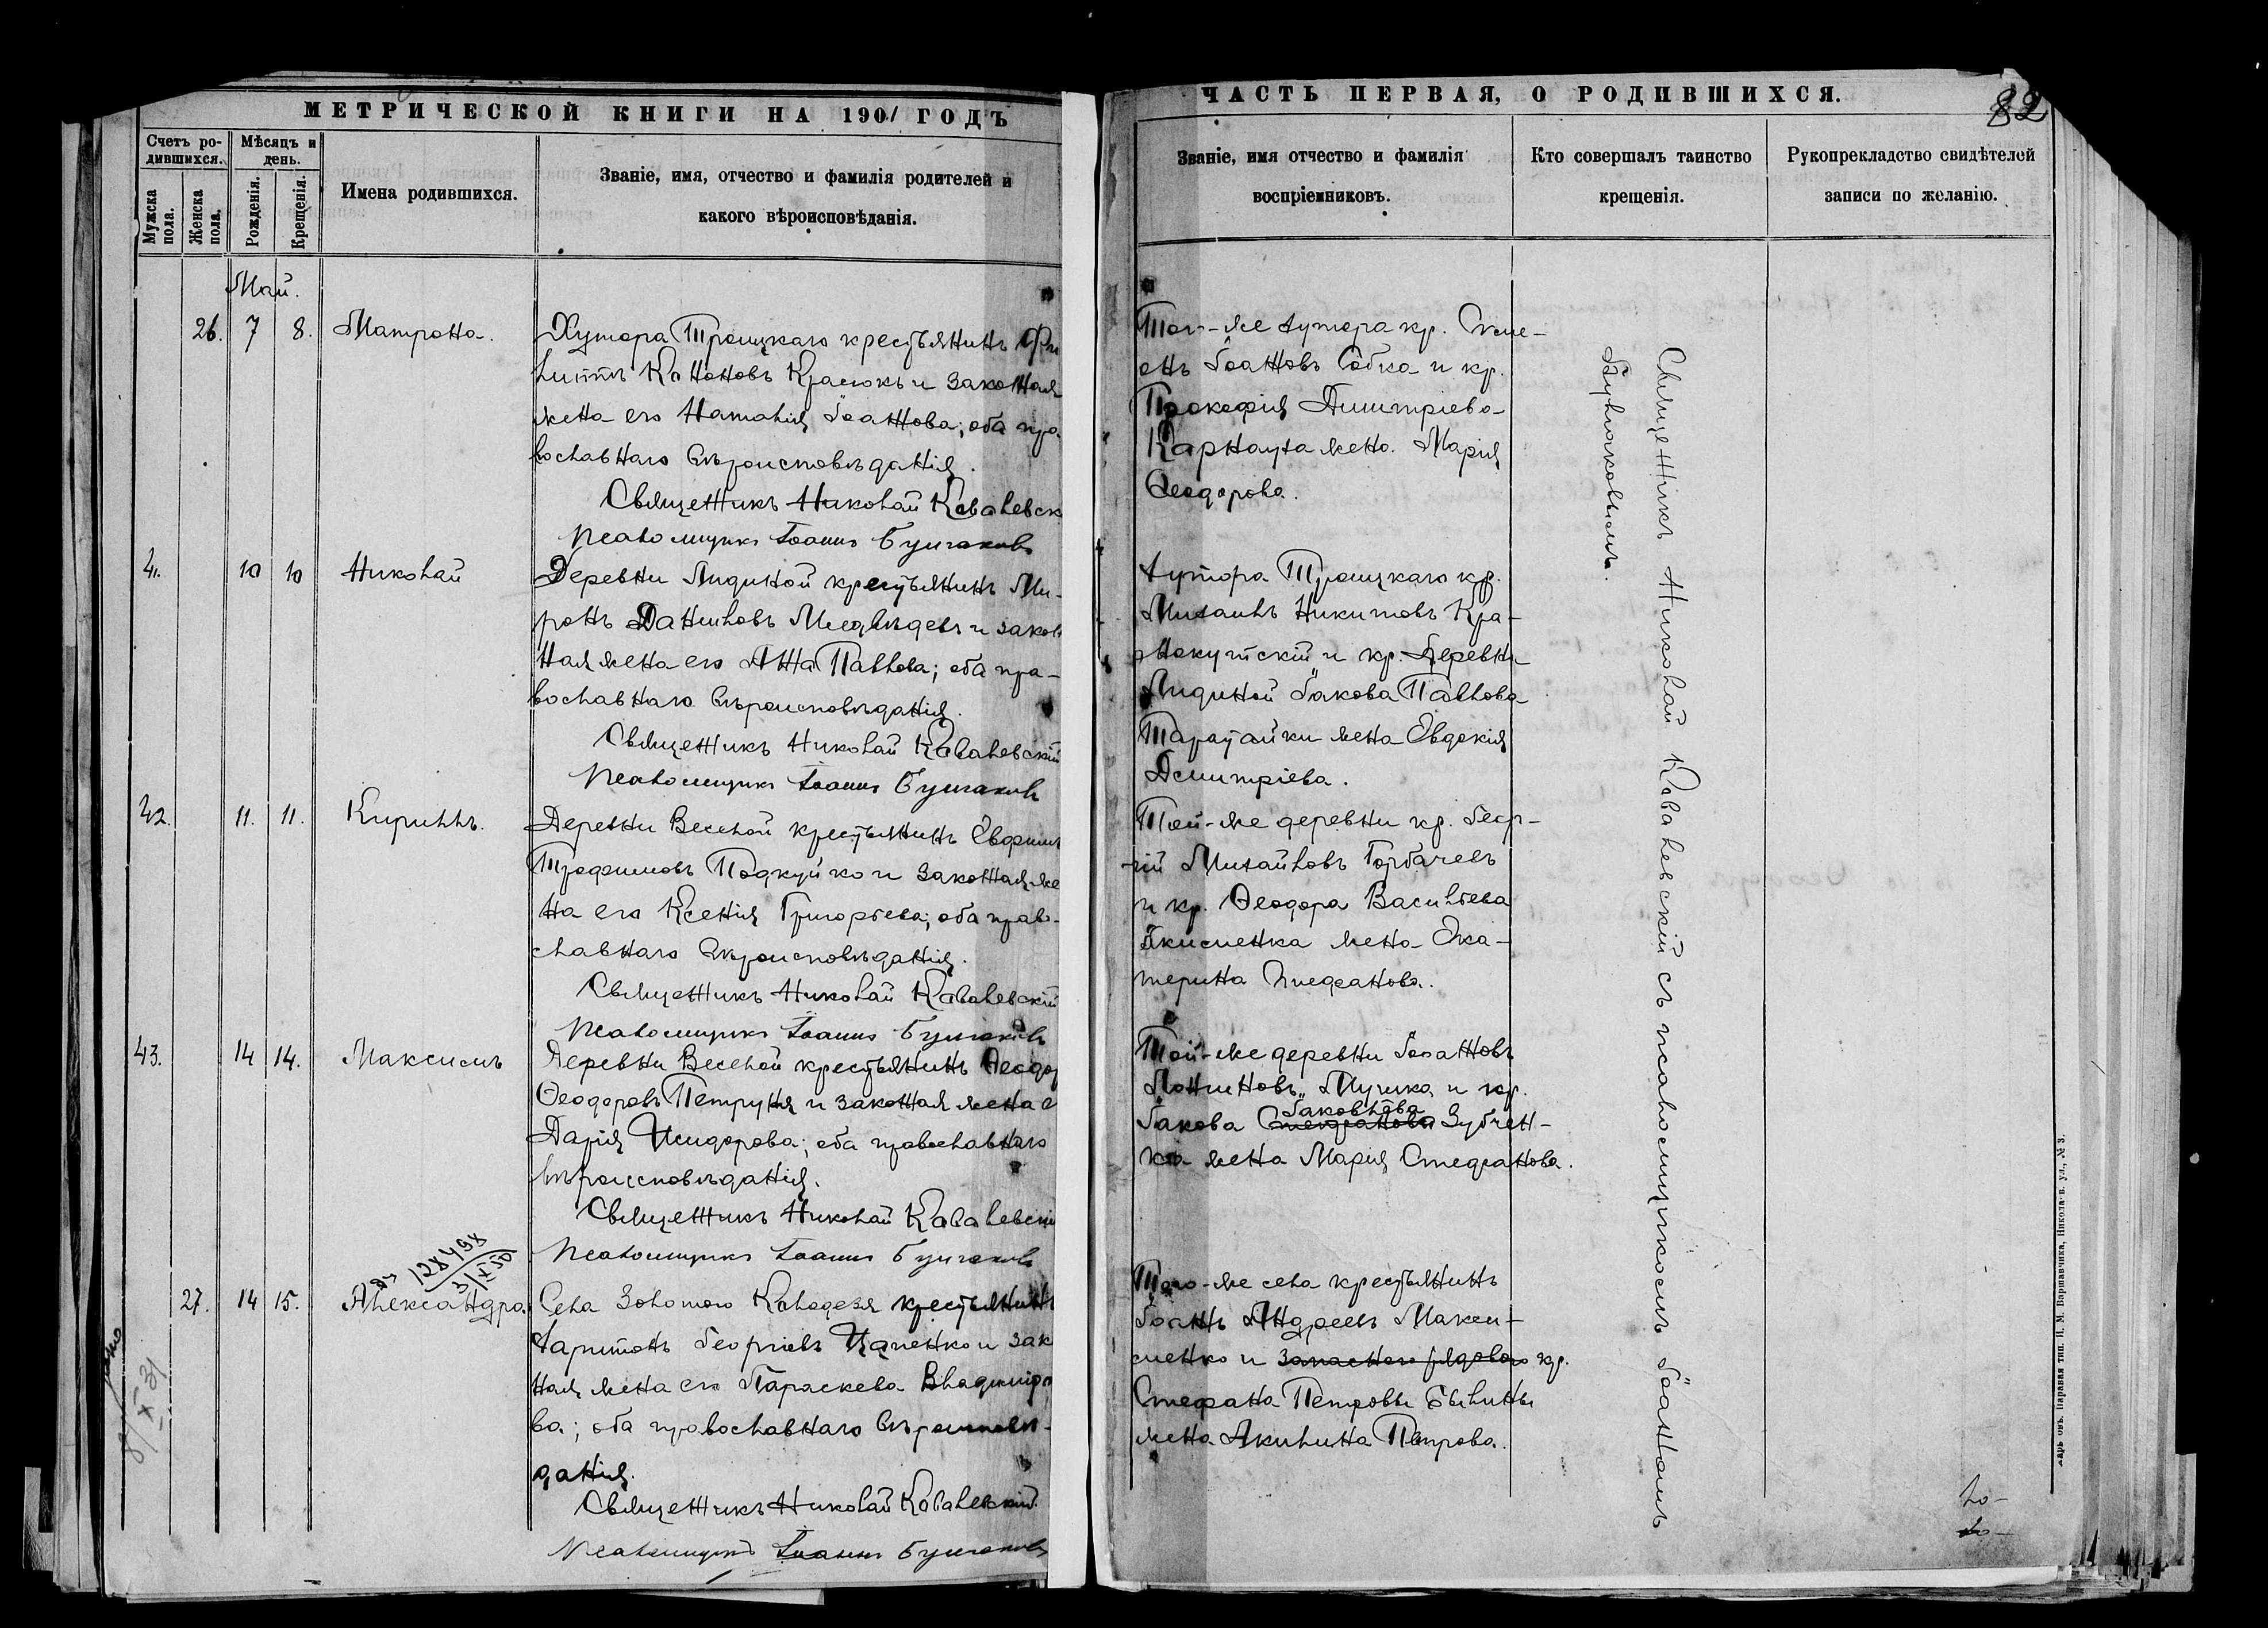 МЕТРИЧЕСКОЙ КНИГИ НА 1901 ГОДЪ
Счетъ ро-
дившихся.
Мѣсяцъ и
день.
Мужска
пола.
Женска
пола.
Рожденія.
Крещенія.
Имена родившихся.
Званіе, имя, отчество и фамилія родителей и
какого вѣроисповѣданія.
Май.
26. 7 8. Матрона.
Хутора Троицкаго крестьянинъ Фи
липпъ Кононовъ Красюкъ и законная
жена его Наталія Іоаннова; оба пра
вославнаго вѣроисповѣданія.
Священникъ Николай Ковалевск
Псаломщикъ Іоаннъ
41. 10 10 Николай
Деревни Лидиной крестьянинъ Ми-
ронъ Даниловъ Медвѣдевъ и закон
ная жена его Анна Павлова; оба пра-
вославнаго вѣроисповѣданія.
Священникъ Николай Ковалевскій
Псаломщикъ Іоаннъ
42. 11. 11. Кириллъ.
Деревни Веселой крестьянинъ Евфимъ
Трофимовъ Подкуйко и законная же
на его Ксенія Григорьева; оба право-
славнаго вѣроисповѣданія.
Священникъ Николай Ковалевскій
Псаломщикъ Іоаннъ
43. 14 14. Максимъ
Деревни Веселой крестьянинъ Ѳеодор
Ѳеодоровъ Петруня и законная жена е
Дарія Исидорова; оба православнаго
вѣроисповѣданія.
Священникъ Николай Ковалевскій
Псаломщикъ Іоаннъ
128498
3/XI 50
27. 14 15. Александра
Села Золотого Колодезя крестьянинъ
Харитонъ Георгіевъ Цапенко и зак
ная жена его Параскева Владимірo
ва; оба православнаго вѣроисповѣ-
данія.
Священникъ Николай Ковалевскій.
Псаломщикъ Іоаннъ
ЧАСТЬ ПЕРВАЯ, О РОДИВШИХСЯ.
82
Званіе, имя отчество и фамилія
воспріемниковъ.
Кто совершалъ таинство
крещенія.
Рукоприкладство свидѣтелей
записи по желанію.
Того-же хутора кр. Симе-
онъ Іоанновъ Собка и кр.
Прокофія Димитріева
Карнауха жена Марія
Ѳеодорова.
Хутора Троицкаго кр.
Михаилъ Никитовъ Кра-
снокутскій и кр. деревни
Лидиной Іакова Павлова
Таратайки жена Евдокія
Димитріева.
Той-же деревни кр. Геор-
гій Михайловъ Горбачевъ
и кр. Ѳеодора Васильева
Якименка жена Ека-
терина Стефанова.
Той-же деревни Іоаннъ
Логиновъ Мушка и кр.
Іаковлева
Іакова Стефанова Зубчен-
ка жена Марія Стефанова.
Того-же села крестьянинъ
Іоаннъ Андреевъ Макси-
менко и запаснаго рядового кр.
Стефана Петрова Былины
жена Акилина Петрова.
Священникъ Николай Ковалевскій съ псаломщикомъ Іоанномъ